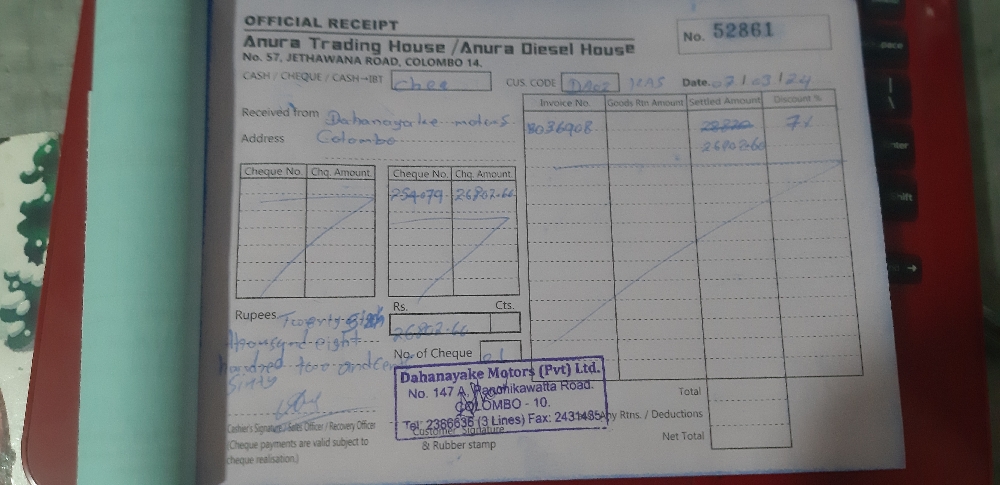 OFFICIAL RECEIPT
No. 52861
Anura Trading House / Anura Diesel House
No. 57, JETHAWANA ROAD, COLOMBO 14.
CASH / CHEQUE / CASH→IBT Chee CUS. CODE KAS Date. 07/03/24
Received from Dahanayake motors
Address Colombo
Invoice No. Goods Rtn Amount Settled Amount Discount %
B036908 28820 7%
26802-60
Cheque No. Chq. Amount Cheque No. Chq. Amount
254079 26802-60
Rupees. Twenty Six
thousand eight
hundred two and cents
Sixty
Rs. Cts.
26802-60
No. of Cheque 01
Dahanayake Motors (Pvt) Ltd.
No. 147 A, Panchikawatta Road.
COLOMBO - 10.
Tel: 2386636 (3 Lines) Fax: 2431485
Cashier's Signature / Sales Officer / Recovery Officer
(Cheque payments are valid subject to
cheque realisation.)
Customer Signature
& Rubber stamp
Total
Any Rtns. / Deductions
Net Total